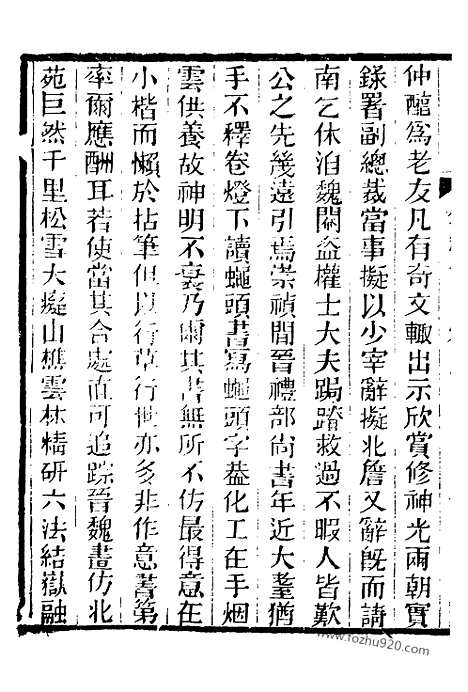 仲醇爲老友凡有奇文輙出示欣賞修神光兩朝實
錄署副總裁當事擬以少宰辭擬北詹又辭旣而請
南乞休洎魏閹益權士大夫跼蹐救過不暇人皆歎
公之先幾遠引焉崇禎間晉禮部尚書年近大耋猶
手不釋卷燈下讀蠅頭書寫蠅頭字葢化工在手烟
雲供養故神明不衰乃爾其書無所不仿最得意在
小楷而懶於拈筆但以行草行世亦多非作意書第
率爾應酬耳若使當其合處直可追踪晉魏畫仿北
苑巨然千里松雪大癡山樵雲林精研六法結嶽融
www.fozhu920.com